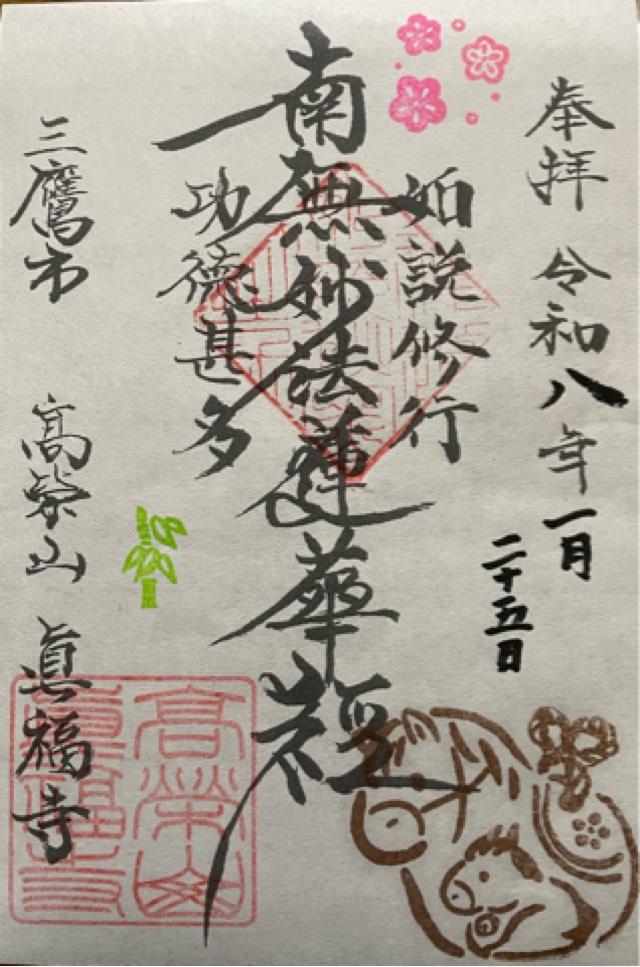 奉拝 令和八年一月
二十五日
如説修行
南無妙法蓮華経
功徳甚多
三鷹市 高榮山 眞福寺
高榮山
眞福寺